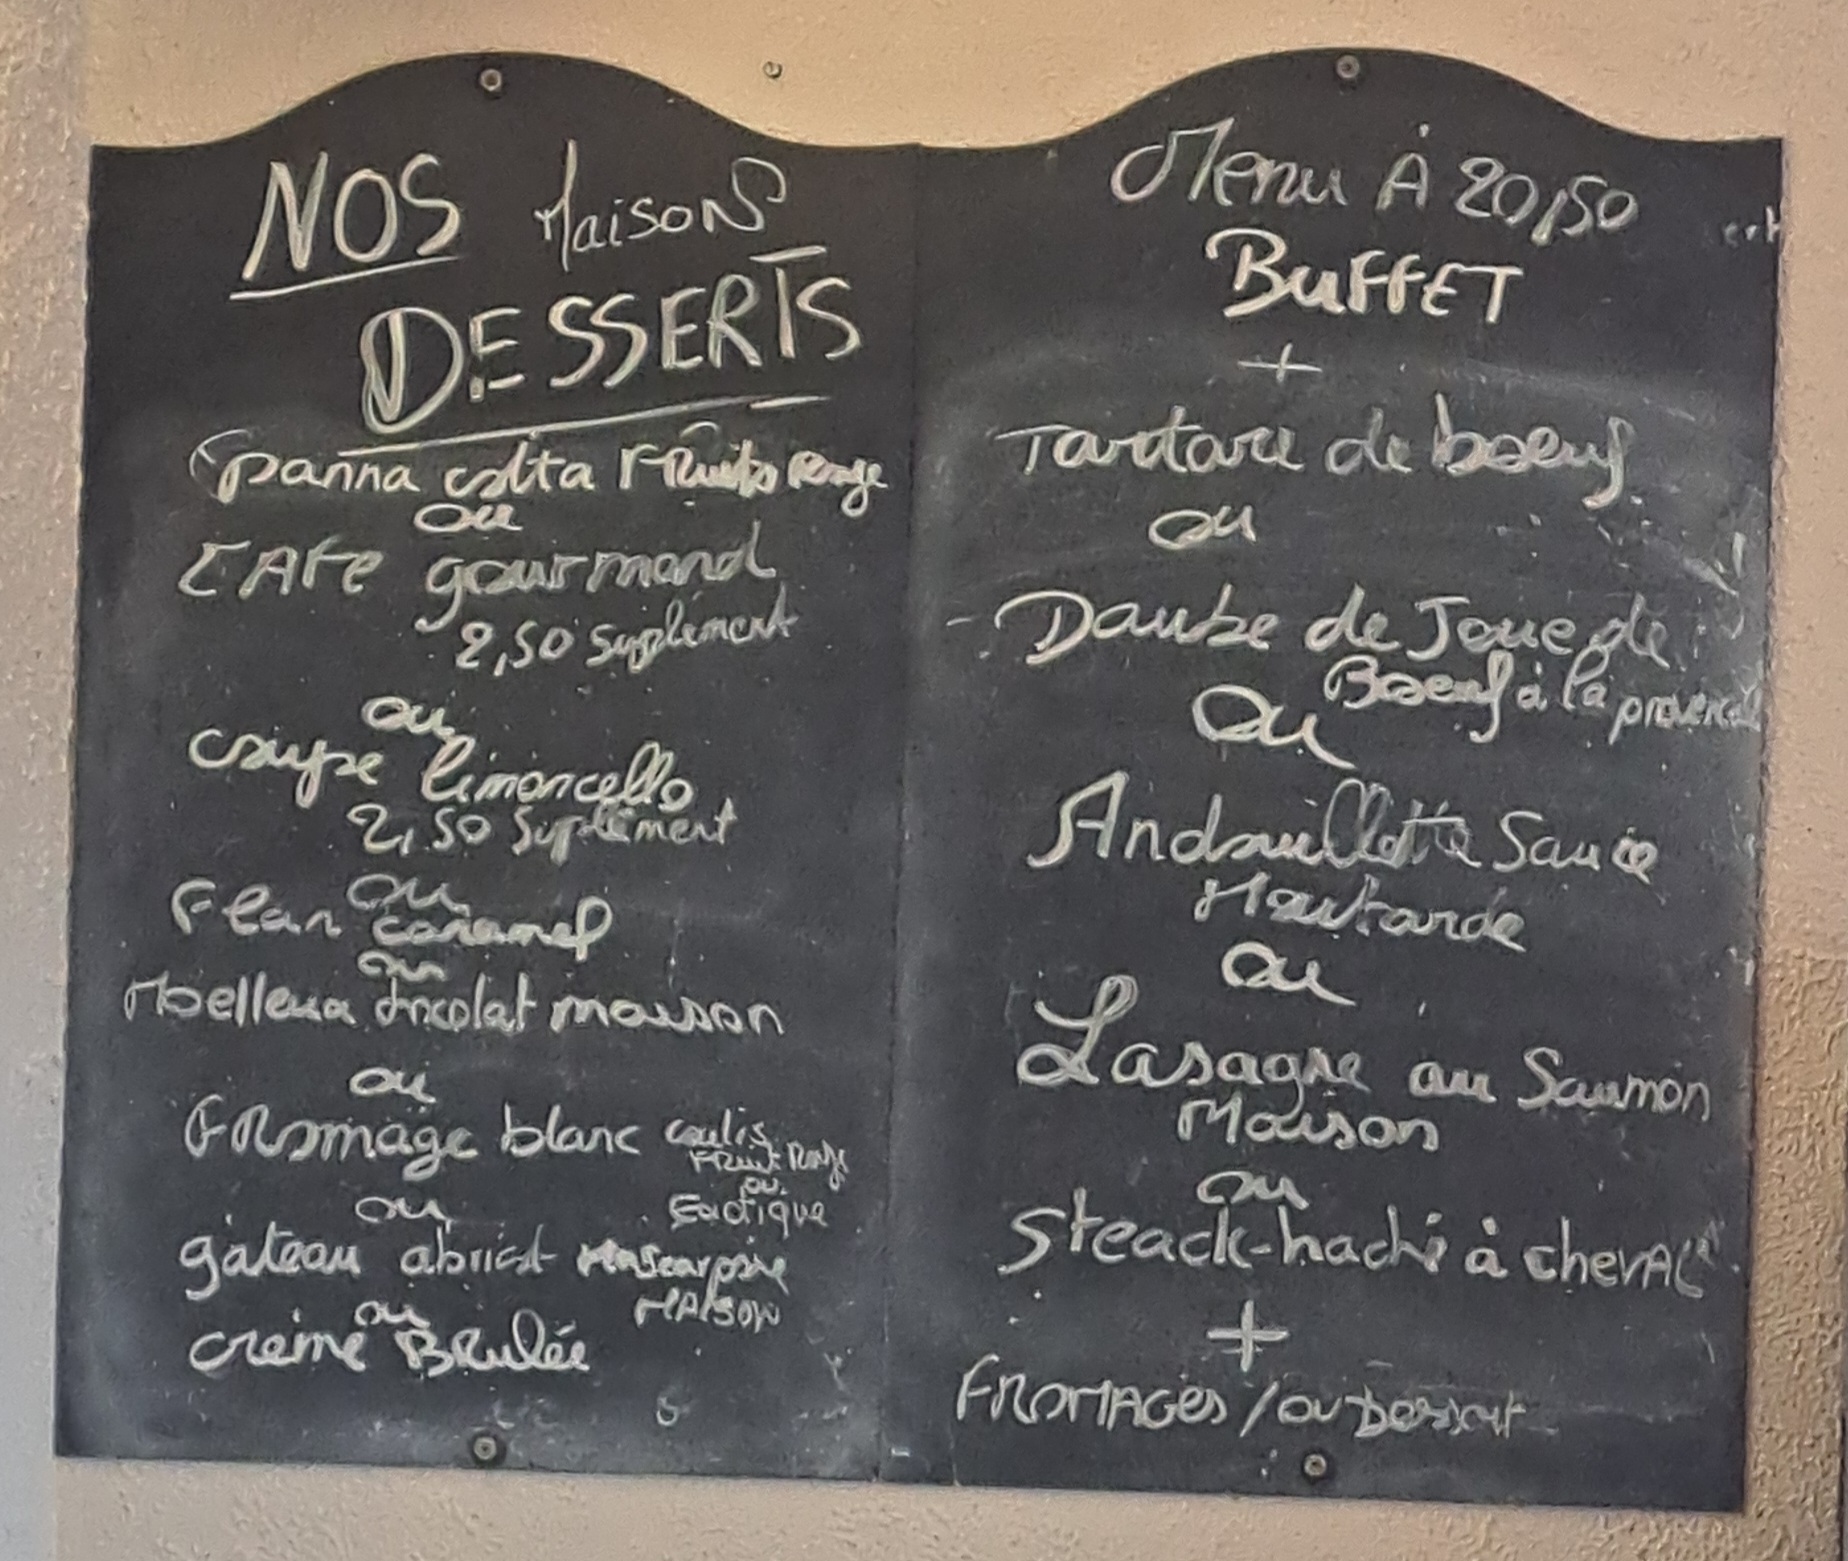 NOS Maisons
DESSERTS
panna cotta Fruits Rouge
ou
CAFE gourmand
2,50 Supplément
ou
coupe limoncello
2,50 Supplément
ou
Flan caramel
ou
Moelleux chocolat maison
ou
FRomage blanc coulis
FRuit Rouge
ou
Exotique
ou
gâteau abricot Mascarpone
MAISON
ou
crème BRulée
Menu À 20,50
BuFFET
+
Tartare de boeuf
ou
- Daube de Joue de
Boeuf à la provençale
ou
Andouillette Sauce
Moutarde
ou
Lasagne au Saumon
Maison
ou
Steack-haché à chevAL
+
FROMAGES / ou Dessert